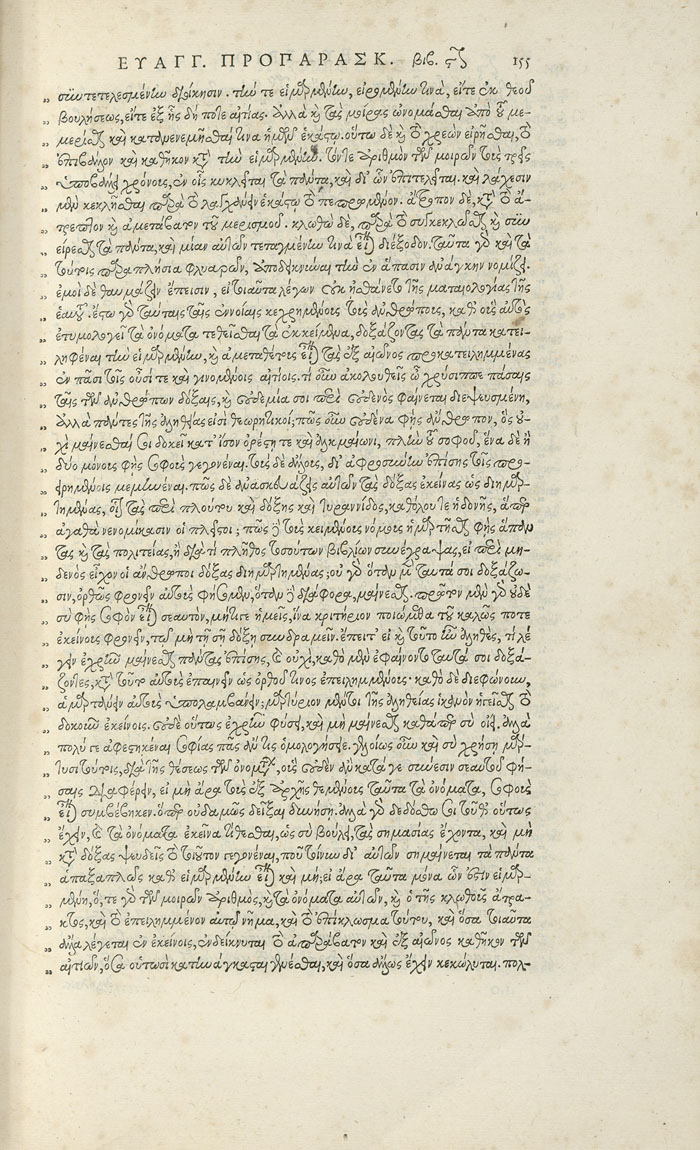 ΕΥΑΓΓ. ΠΡΟΠΑΡΑΣΚ. βιβ. ϛʹ 155
συντετελεσμένην διοίκησιν. τήν τε εἱμαρμένην, εἰρομένην τινὰ, εἴτε ἐκ θεοῦ
βουλήσεως, εἴτε ἐξ ἧς δή ποτε αἰτίας. ἀλλὰ καὶ τὰς μοίρας ὠνομάσθαι ἀπὸ τοῦ με-
μερίσθαι καὶ κατανενεμῆσθαί τινα ἡμῶν ἑκάστῳ. οὕτω δὲ καὶ τὸ χρεὼν εἰρῆσθαι, τὸ
ἐπιβάλλον καὶ καθῆκον κατὰ τὴν εἱμαρμένην. τόν τε ἀριθμὸν τῶν μοιρῶν τοὺς τρεῖς
ὑποβάλλει χρόνους, ἐν οἷς κυκλεῖται τὰ πάντα, καὶ δι' ὧν ἐπιτελεῖται. καὶ λάχεσιν
μὲν κεκλῆσθαι παρὰ τὸ λαγχάνειν ἑκάστῳ τὸ πεπρωμένον. ἄτροπον δὲ, κατὰ τὸ ἄ-
τρεπτον καὶ ἀμετάβατον τοῦ μερισμοῦ. κλωθὼ δὲ, παρὰ τὸ συγκεκλῶσθαι καὶ συν
είρεσθαι τὰ πάντα, καὶ μίαν αὐτῶν τεταγμένην τινὰ εἶναι διέξοδον. ταῦτα γὰρ καὶ τὰ
τούτοις παραπλήσια φλυαρῶν, ἀποδεικνύναι τὴν ἐν ἅπασιν ἀνάγκην νομίζει.
ἐμοὶ δὲ θαυμάζειν ἔπεισιν, εἰ τοιαῦτα λέγων οὐκ ᾐσθάνετο τῆς ματαιολογίας τῆς
ἑαυτοῦ. ἔστω γὰρ ταύταις ταῖς ἐννοίαις κεχρημένους τοὺς ἀνθρώπους, καθ' οὓς αὐτὸς
ἐτυμολογεῖ τὰ ὀνόματα τεθεῖσθαι τὰ ἐκκείμενα, δοξάζοντας τὰ πάντα κατει-
ληφέναι τὴν εἱμαρμένην, καὶ ἀμεταθέτους εἶναι τὰς ἐξ αἰῶνος προκατειλημμένας
ἐν πᾶσι τοῖς οὖσί τε καὶ γινομένοις αἰτίοις. τί οὖν ἀκολουθεῖς ὦ χρύσιππε πάσαις
ταῖς τῶν ἀνθρώπων δόξαις, καὶ οὐδεμία σοι περὶ οὐδενὸς φαίνεται διεψευσμένη,
ἀλλὰ πάντες τῆς ἀληθείας εἰσὶ θεωρητικοί; πῶς οὖν οὐδένα φῂς ἄνθρωπον, ὃς οὐ-
χὶ μαίνεσθαί σοι δοκεῖ κατ' ἴσον ὀρέστῃ τε καὶ ἀλκμαίωνι, πλὴν τοῦ σοφοῦ, ἕνα δὲ ἢ
δύο μόνους φῂς σοφοὺς γεγονέναι. τοὺς δὲ ἄλλους, δι' ἀφροσύνην ἐπίσης τοῖς προ-
ειρημένοις μεμηνέναι. πῶς δὲ ἀνασκευάζεις αὐτῶν τὰς δόξας ἐκείνας ὡς διημαρ-
τημένας, οἷον τὰς περὶ πλούτου καὶ δόξης καὶ τυραννίδος, καθόλου τε ἡδονῆς, ἅπερ
ἀγαθὰ νενομίκασιν οἱ πλεῖστοι; πῶς δὲ τοὺς κειμένους νόμους ἡμαρτῆσθαι φῂς ἅπαν
τας καὶ τὰς πολιτείας, ἢ διὰ τί πλῆθος τοσούτων βιβλίων συνέγραψας, εἰ περὶ μη-
δενὸς εἶχον οἱ ἄνθρωποι δόξας διημαρτημένας; οὐ γὰρ ὅταν μὲν ταυτά σοι δοξάζω-
σιν, ὀρθῶς φρονεῖν αὐτοὺς φήσομεν, ὅταν δὲ διάφορα, μαίνεσθαι. πρῶτον μὲν γὰρ οὐδὲ
σὺ φῂς σοφὸν εἶναι σεαυτὸν, μήτι γε ἡμεῖς, ἵνα κριτήριον ποιώμεθα τοῦ καλῶς ποτε
ἐκείνους φρονεῖν, τῷ μὴ τῇ σῇ δόξῃ συνδραμεῖν. ἔπειτ' εἰ καὶ τοῦτο ἦν ἀληθὲς, τί λέ
γειν ἐχρῆν μαίνεσθαι πάντας ἐπίσης, τὸ οὐχὶ, καθὸ μὲν ἐφαίνοντο ταυτά σοι δοξά-
ζοντες, κατὰ τοῦτ' αὐτοὺς ἐπαινεῖν ὡς ὀρθοῦ τινος ἐπειλημμένους. καθὸ δὲ διεφώνουν,
ἁμαρτάνειν αὐτοὺς ὑπολαμβάνειν; μαρτύριον μέντοι τῆς ἀληθείας ἱκανὸν ἡγεῖσθαι τὸ
δοκοῦν ἐκείνοις. οὐδὲ οὕτως ἐχρῆν φύσει, καὶ μὴ μαίνεσθαι καθάπερ σὺ οἴει. ἀλλὰ
πολύ γε ἀφεστηκέναι σοφίας πᾶς ἄν τις ὁμολογήσειε. γελοίως οὖν καὶ σὺ χρήσῃ μάρ-
τυσι τούτοις, διὰ τῆς θέσεως τῶν ὀνομάτων, οὓς οὐδὲν ἂν κατά γε σύνεσιν σεαυτοῦ φή-
σαις διαφέρειν, εἰ μὴ ἄρα τοὺς ἐξ ἀρχῆς θεμένους ταῦτα τὰ ὀνόματα, σοφοὺς
εἶναι συμβέβηκεν. ὅπερ οὐδαμῶς δεῖξαι δυνήσῃ. ἀλλὰ γὰρ δεδόσθω σοι τοῦθ' οὕτως
ἔχειν, τὸ τὰ ὀνόματα ἐκεῖνα τίθεσθαι, ὡς σὺ βούλει, τὰς σημασίας ἔχοντα, καὶ μὴ
κατὰ δόξας ψευδεῖς τὸ τοιοῦτον γεγονέναι, ποῦ τοίνυν δι' αὐτῶν σημαίνεται τὰ πάντα
ἁπαξαπλῶς καθ' εἱμαρμένην εἶναι καὶ μή; εἰ ἄρα ταῦτα μόνα ὧν ἐστιν εἱμαρ-
μένη, ὅ, τε γὰρ τῶν μοιρῶν ἀριθμὸς, καὶ τὰ ὀνόματα αὐτῶν, καὶ ὁ τῆς κλωθοῦς ἄτρα-
κτος, καὶ τὸ ἐπειλημμένον αὐτῷ νῆμα, καὶ τὸ ἐπίκλωσμα τούτου, καὶ ὅσα τοιαῦτα
ἄλλα λέγεται ἐν ἐκείνοις, ἐνδείκνυται τὸ ἀπαράβατον καὶ ἐξ αἰῶνος καθῆκον τῶν
αἰτιῶν, ὅσα οὑτωσὶ κατηνάγκασται γενέσθαι, καὶ ὅσα ἄλλως ἔχειν κεκώλυται. πολ-